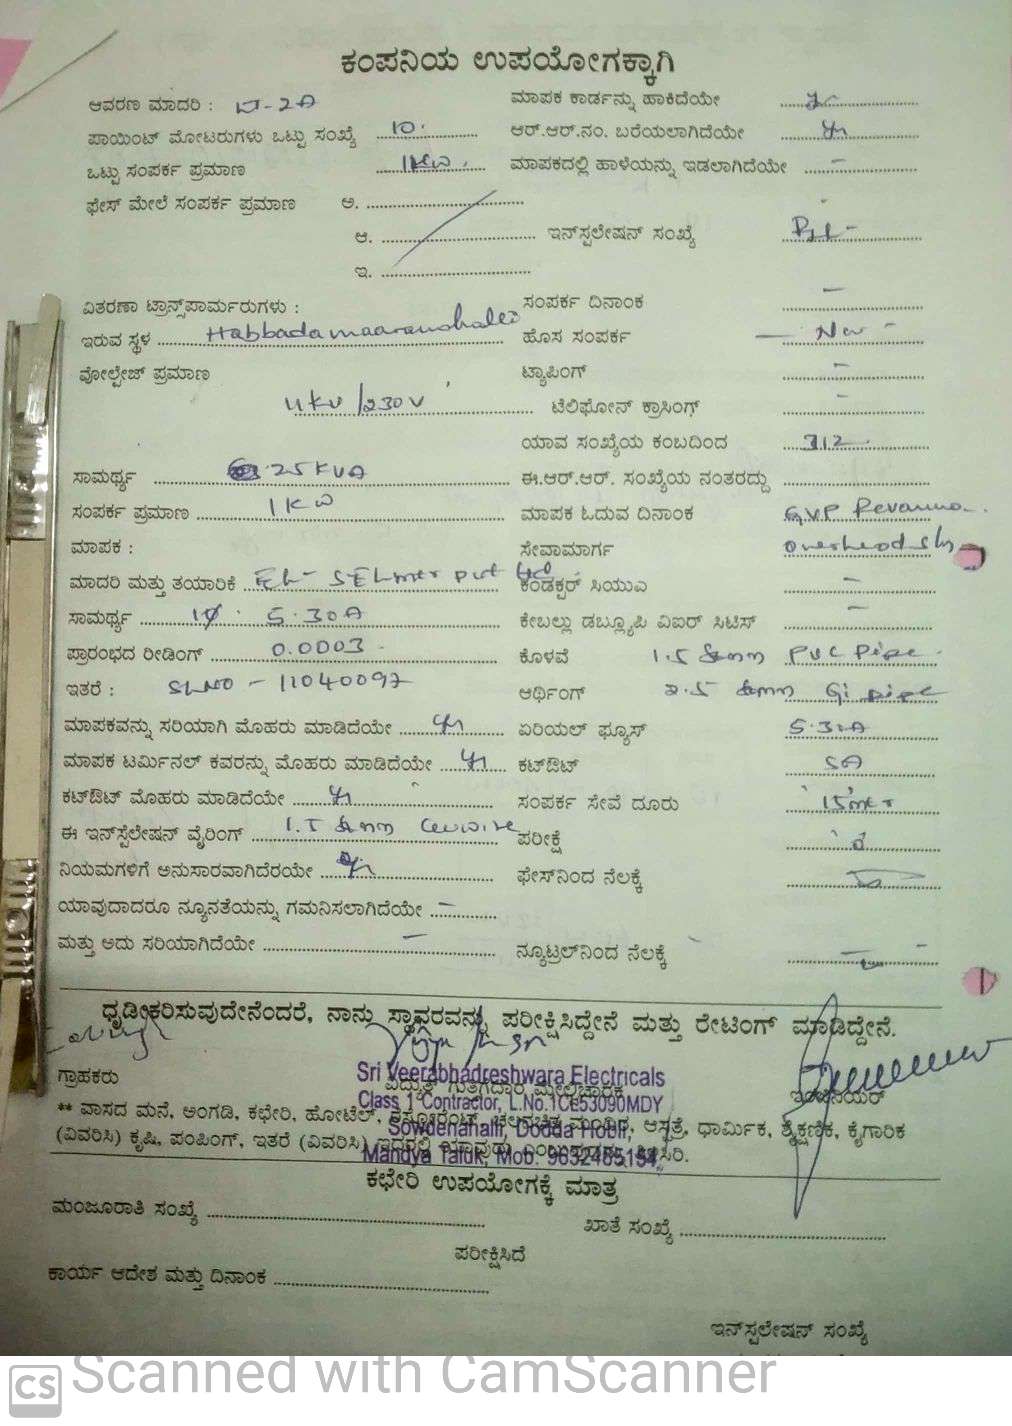 ಕಂಪನಿಯ ಉಪಯೋಗಕ್ಕಾಗಿ
ಆವರಣ ಮಾದರಿ : ಮಾಪಕ ಕಾರ್ಡನ್ನು ಹಾಕಿದೆಯೇ
ಪಾಯಿಂಟ್ ಮೋಟರುಗಳು ಒಟ್ಟು ಸಂಖ್ಯೆ 10 ಆರ್.ಆರ್.ನಂ. ಬರೆಯಲಾಗಿದೆಯೇ
ಒಟ್ಟು ಸಂಪರ್ಕ ಪ್ರಮಾಣ 1KW ಮಾಪಕದಲ್ಲಿ ಹಾಳೆಯನ್ನು ಇಡಲಾಗಿದೆಯೇ
ಫೇಸ್ ಮೇಲೆ ಸಂಪರ್ಕ ಪ್ರಮಾಣ ಅ.
ಆ. ಇನ್‌ಸ್ಪಲೇಷನ್ ಸಂಖ್ಯೆ
ಇ.
ವಿತರಣಾ ಟ್ರಾನ್ಸ್‌ಪಾರ್ಮರುಗಳು : ಸಂಪರ್ಕ ದಿನಾಂಕ
ಇರುವ ಸ್ಥಳ ಹೊಸ ಸಂಪರ್ಕ New
ವೋಲ್ಟೇಜ್ ಪ್ರಮಾಣ ಟ್ಯಾಪಿಂಗ್
11KV/230V ಟೆಲಿಫೋನ್ ಕ್ರಾಸಿಂಗ್
ಯಾವ ಸಂಖ್ಯೆಯ ಕಂಬದಿಂದ 312
ಸಾಮರ್ಥ್ಯ 25KVA ಈ.ಆರ್.ಆರ್. ಸಂಖ್ಯೆಯ ನಂತರದ್ದು
ಸಂಪರ್ಕ ಪ್ರಮಾಣ 1KW ಮಾಪಕ ಓದುವ ದಿನಾಂಕ GVP Revanna
ಮಾಪಕ : ಸೇವಾಮಾರ್ಗ
ಮಾದರಿ ಮತ್ತು ತಯಾರಿಕೆ ಕಂಡಕ್ಟರ್ ಸಿಯುಎ
ಸಾಮರ್ಥ್ಯ 1Φ 5-30A ಕೇಬಲ್ಲು ಡಬ್ಲ್ಯೂಪಿ ವಿಐರ್ ಸಿಟಿಸ್
ಪ್ರಾರಂಭದ ರೀಡಿಂಗ್ 0.0003 ಕೊಳವೆ PVC Pipe
ಇತರೆ : SLNO - 11040097 ಆರ್ಥಿಂಗ್ GI pipe
ಮಾಪಕವನ್ನು ಸರಿಯಾಗಿ ಮೊಹರು ಮಾಡಿದೆಯೇ ಏರಿಯಲ್ ಫ್ಯೂಸ್ 5-30A
ಮಾಪಕ ಟರ್ಮಿನಲ್ ಕವರನ್ನು ಮೊಹರು ಮಾಡಿದೆಯೇ ಕಟ್‌ಔಟ್ 5A
ಕಟ್‌ಔಟ್ ಮೊಹರು ಮಾಡಿದೆಯೇ ಸಂಪರ್ಕ ಸೇವೆ ದೂರು
ಈ ಇನ್‌ಸ್ಟೆಲೇಷನ್ ವೈರಿಂಗ್ ಪರೀಕ್ಷೆ
ನಿಯಮಗಳಿಗೆ ಅನುಸಾರವಾಗಿದೆರಯೇ ಫೇಸ್‌ನಿಂದ ನೆಲಕ್ಕೆ
ಯಾವುದಾದರೂ ನ್ಯೂನತೆಯನ್ನು ಗಮನಿಸಲಾಗಿದೆಯೇ
ಮತ್ತು ಅದು ಸರಿಯಾಗಿದೆಯೇ ನ್ಯೂಟ್ರಲ್‌ನಿಂದ ನೆಲಕ್ಕೆ
ಧೃಡೀಕರಿಸುವುದೇನೆಂದರೆ, ನಾನು ಸ್ಥಾವರವನ್ನು ಪರೀಕ್ಷಿಸಿದ್ದೇನೆ ಮತ್ತು ರೇಟಿಂಗ್ ಮಾಡಿದ್ದೇನೆ.
Sri Veerabhadreshwara Electricals
ಗ್ರಾಹಕರು ವಿದ್ಯುತ್ ಗುತ್ತಿಗೆದಾರ ಮೇಲ್ವಿಚಾರಕ ಇಂಜಿನಿಯರ್
Class 1 Contractor, L.No.1CL53090MDY
** ವಾಸದ ಮನೆ, ಅಂಗಡಿ, ಕಛೇರಿ, ಹೋಟೆಲ್, ಚಲನಚಿತ್ರ ಮಂದಿರ, ಆಸ್ಪತ್ರೆ, ಧಾರ್ಮಿಕ, ಶೈಕ್ಷಣಿಕ, ಕೈಗಾರಿಕ
Sowdenahalli, Dodda Hobli,
(ವಿವರಿಸಿ) ಕೃಷಿ, ಪಂಪಿಂಗ್, ಇತರೆ (ವಿವರಿಸಿ) ಇದರಲ್ಲಿ ಯಾವುದು
Mandya Taluk, Mob: 9632485154
ಕಛೇರಿ ಉಪಯೋಗಕ್ಕೆ ಮಾತ್ರ
ಮಂಜೂರಾತಿ ಸಂಖ್ಯೆ ಖಾತೆ ಸಂಖ್ಯೆ
ಪರೀಕ್ಷಿಸಿದೆ
ಕಾರ್ಯ ಆದೇಶ ಮತ್ತು ದಿನಾಂಕ
ಇನ್‌ಸ್ಪಲೇಷನ್ ಸಂಖ್ಯೆ
CS Scanned with CamScanner